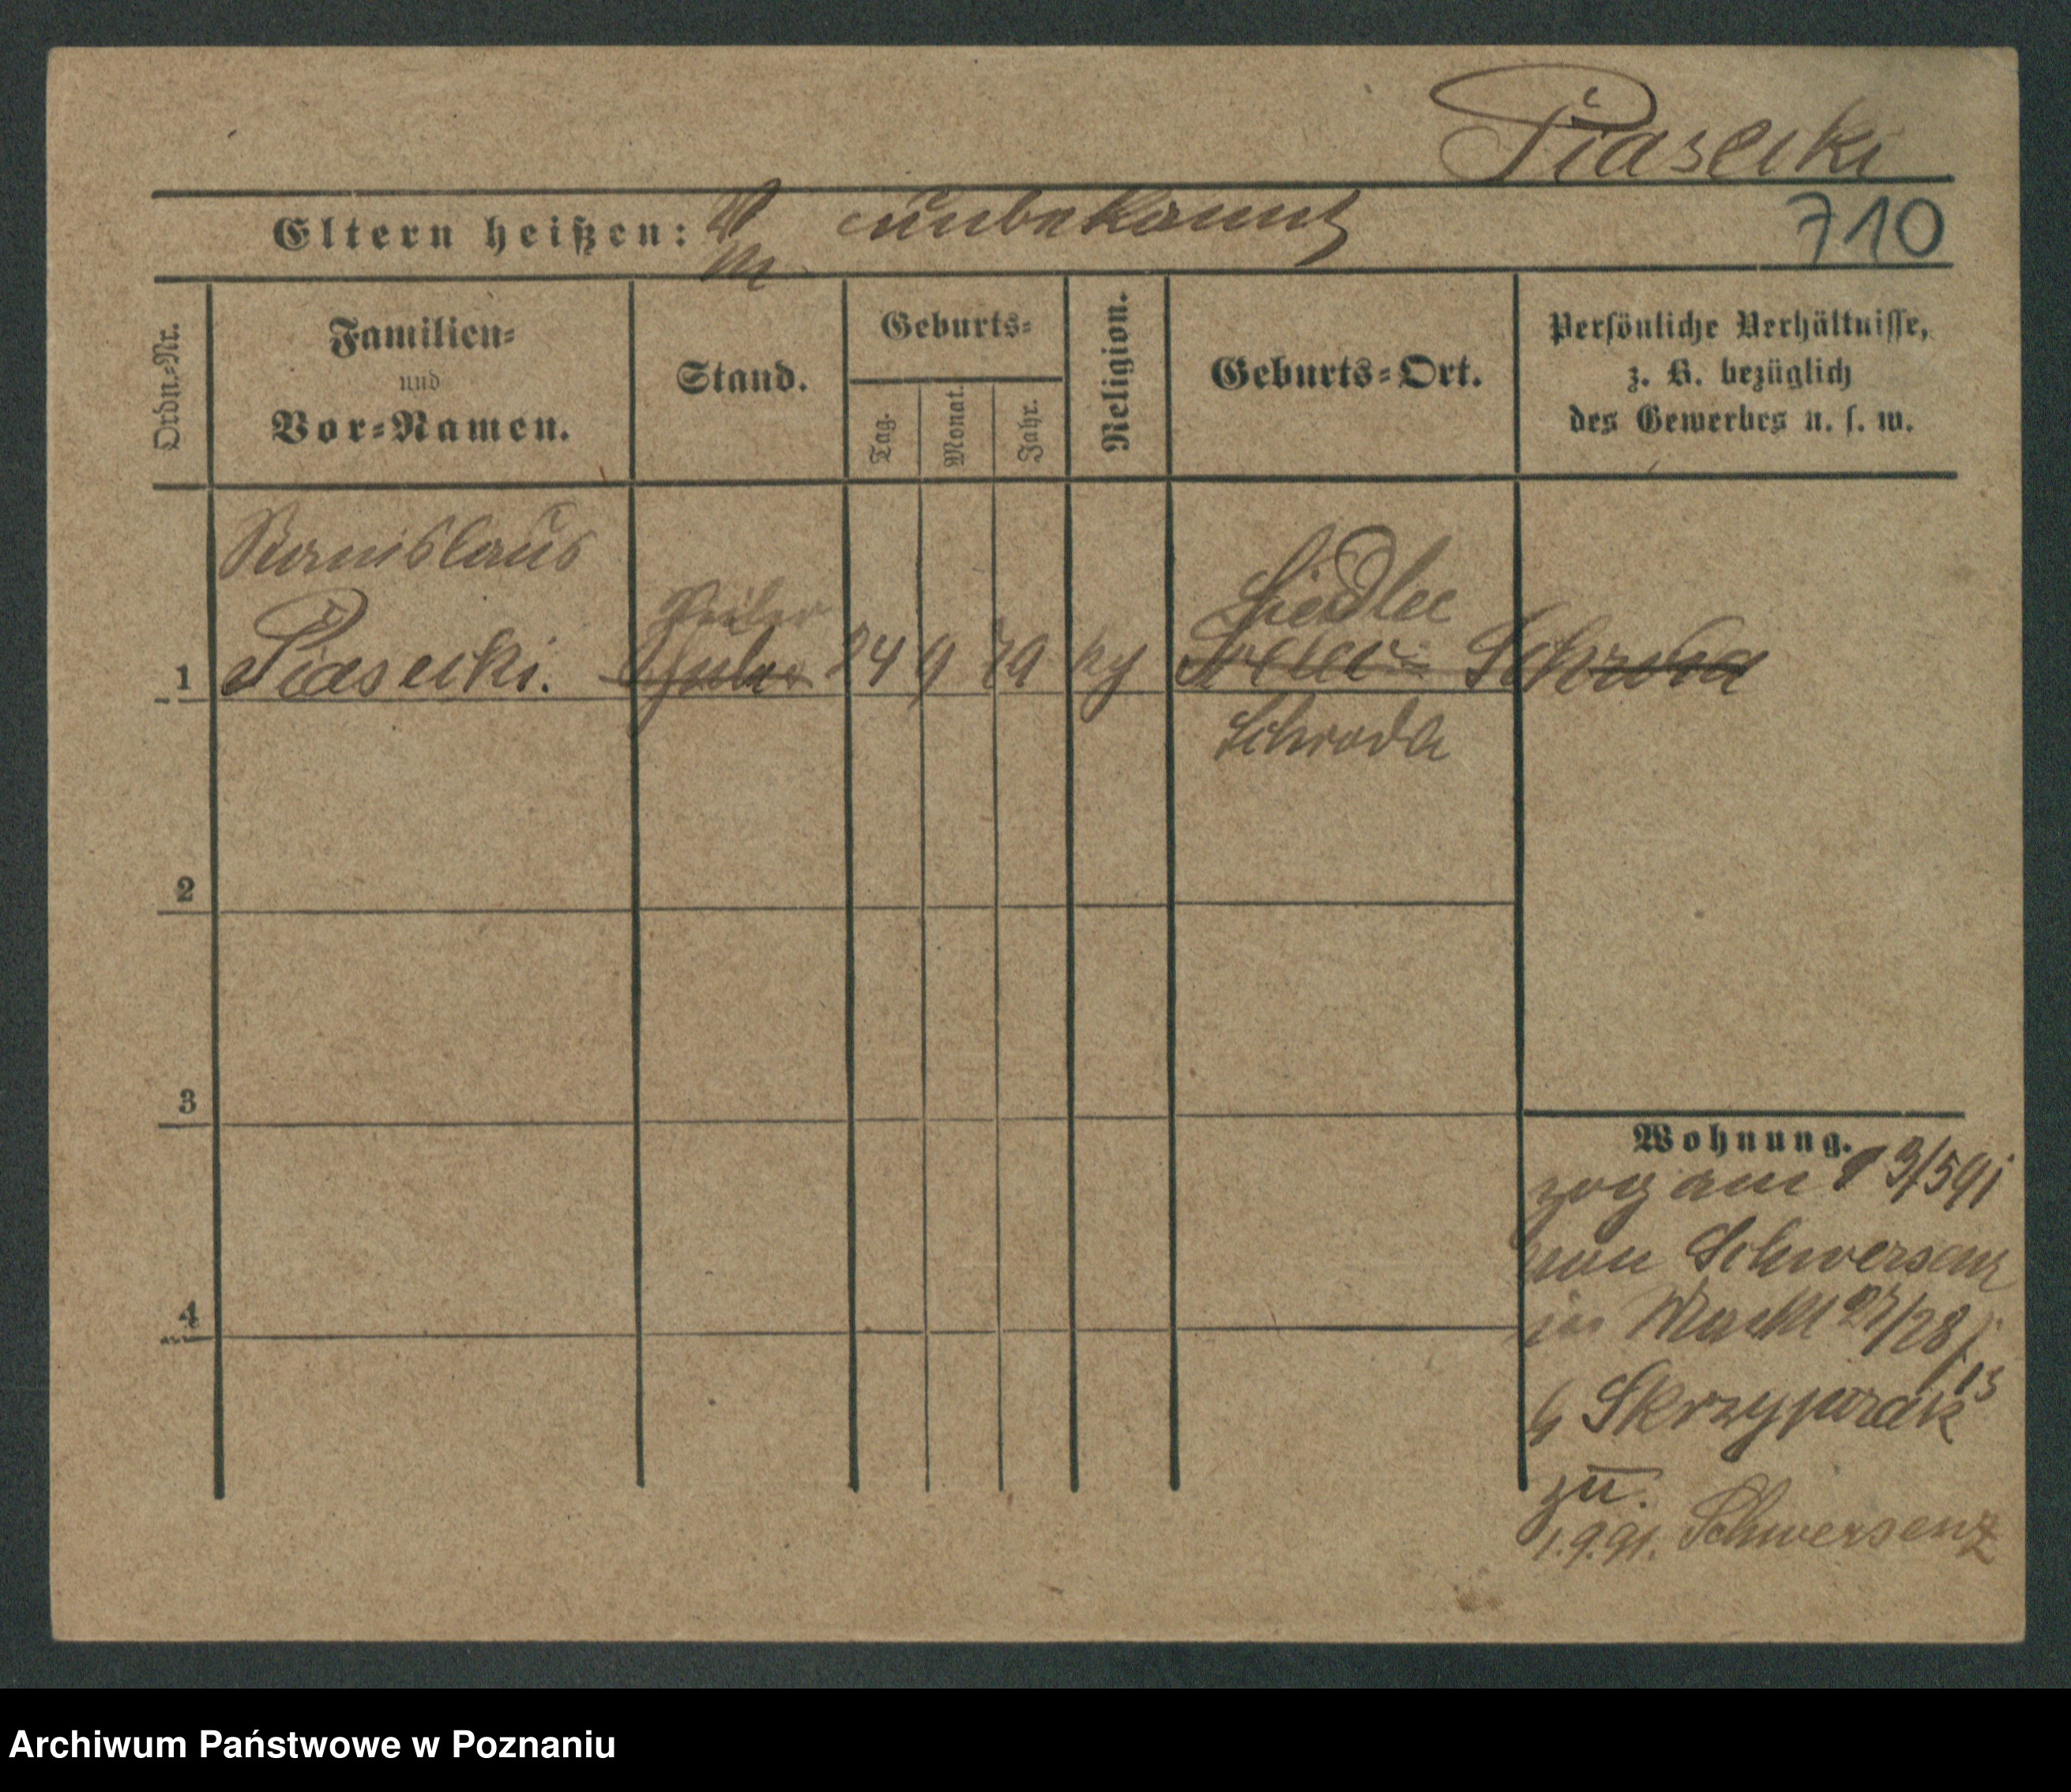 Piasecki
Eltern heißen: V. M. unbekannt
710
Ordn.-Nr.
Familien-
und
Vor-Namen.
Stand.
Geburts-
Tag.
Monat.
Jahr.
Religion.
Geburts-Ort.
Persönliche Verhältnisse,
z. B. bezüglich
des Gewerbes u. s. w.
Stanislaus
Siedlec
1 Piasecki. 24 9 79 Schroda
Schroda
2
3
4
Wohnung.
zog am 13/5 91
von Schwersenz
in Markt 27/28
Skrzypczak
zu.
1.9.91. Schwersenz
Archiwum Państwowe w Poznaniu